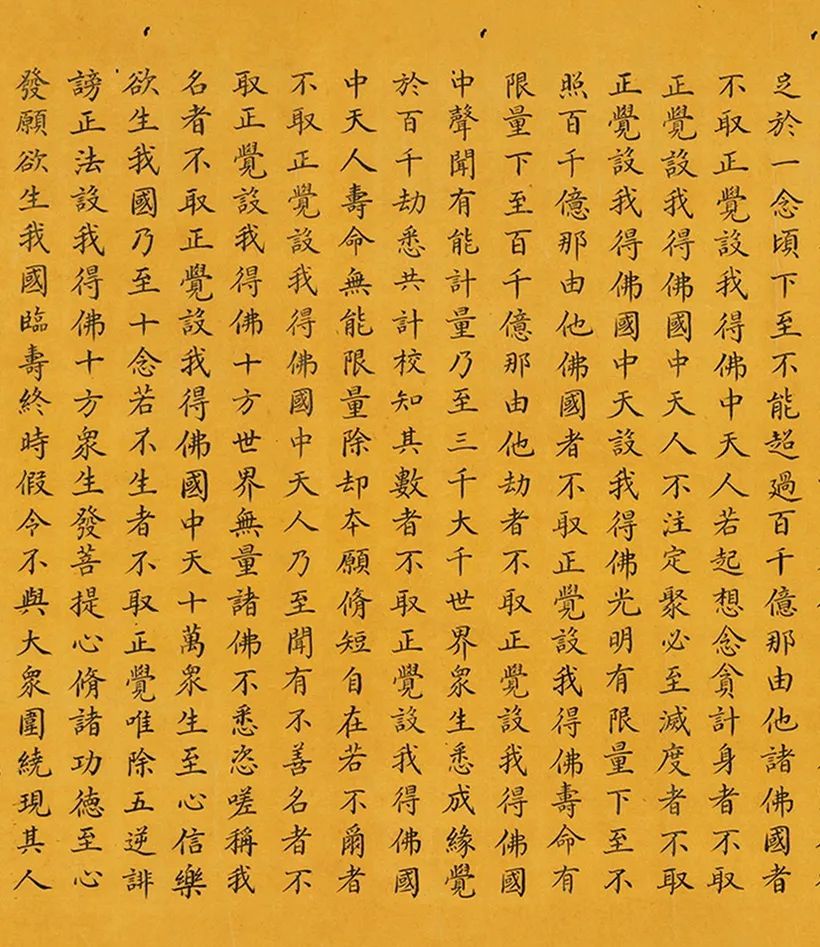 足於一念頃下至不能超過百千億那由他諸佛國者
不取正覺設我得佛中天人若起想念貪計身者不取
正覺設我得佛國中天人不注定聚必至滅度者不取
正覺設我得佛國中天設我得佛光明有限量下至不
照百千億那由他佛國者不取正覺設我得佛壽命有
限量下至百千億那由他劫者不取正覺設我得佛國
中聲聞有能計量乃至三千大千世界眾生悉成緣覺
於百千劫悉共計校知其數者不取正覺設我得佛國
中天人壽命無能限量除却本願脩短自在若不爾者
不取正覺設我得佛國中天人乃至聞有不善名者不
取正覺設我得佛十方世界無量諸佛不悉恣嗟稱我
名者不取正覺設我得佛國中天十萬眾生至心信樂
欲生我國乃至十念若不生者不取正覺唯除五逆誹
謗正法設我得佛十方眾生發菩提心脩諸功德至心
發願欲生我國臨壽終時假令不與大眾圍繞現其人